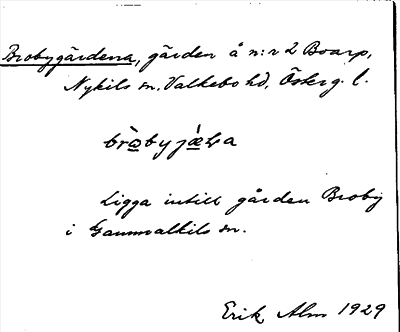 Brobygärdena, gärden å n:r 2 Boarp,
Nykils sn. Valkebo hd, Österg. l.
Ligga intill gården Broby
i Gammalkils sn.
Erik Alm 1929